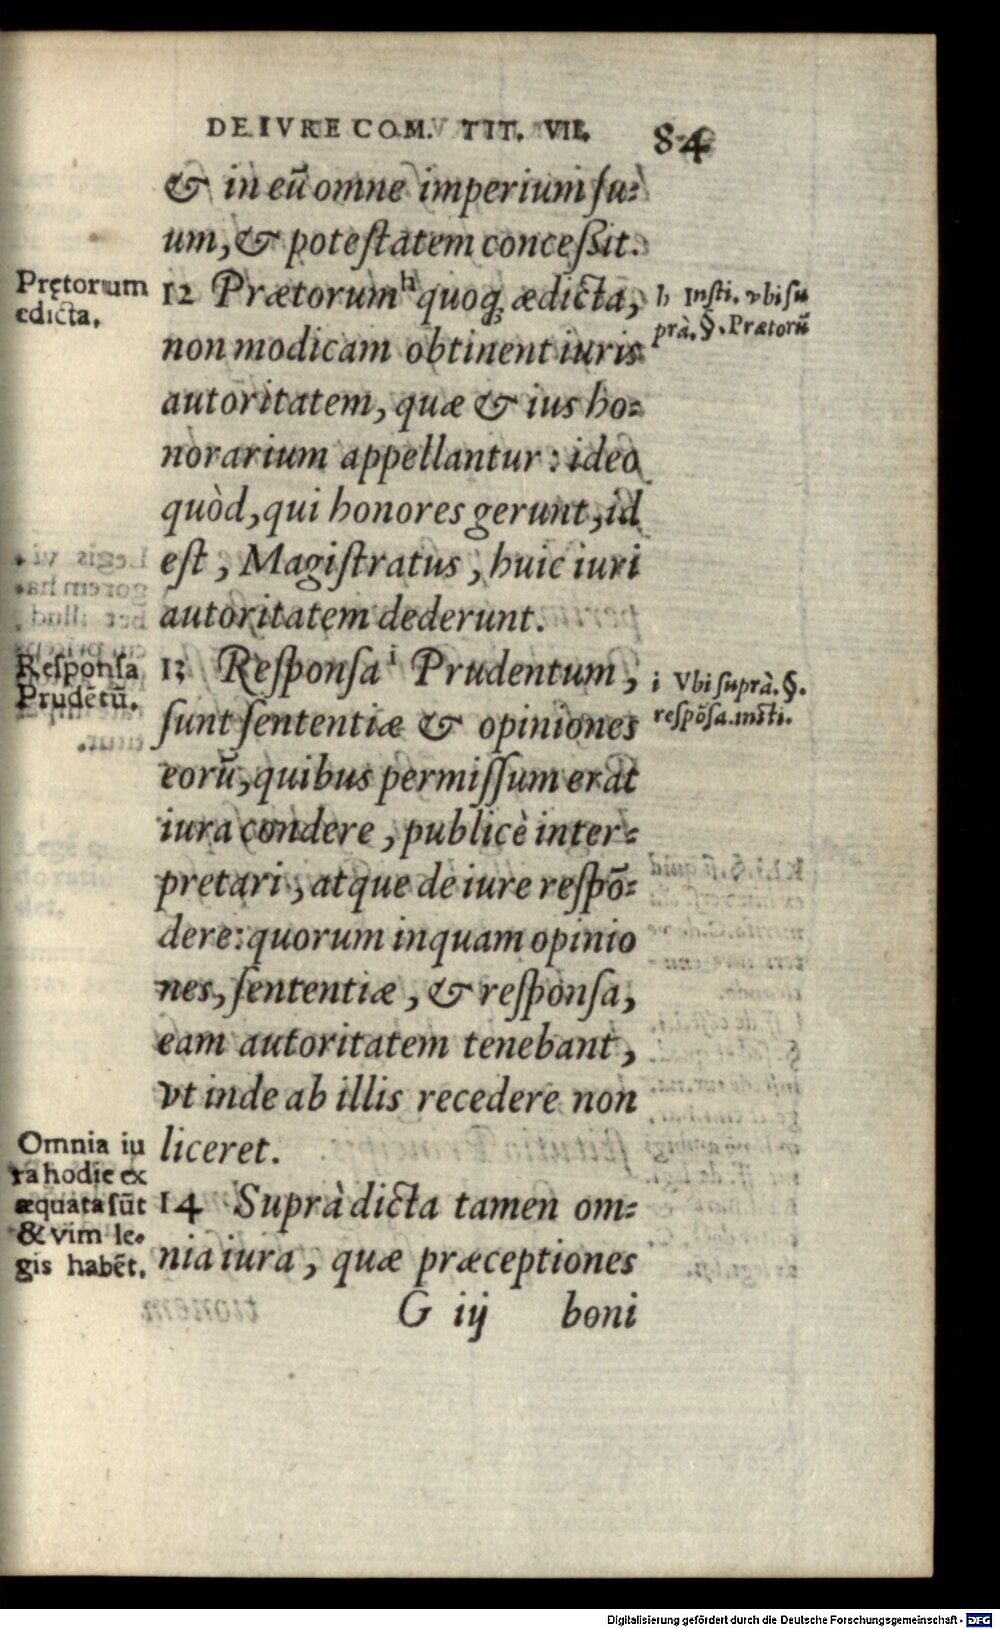 DE IVRE COM. TIT. VII. 84
& in eū omne imperium su-
um, & potestatem concessit.
Prętorum
edicta.
12 Prætorum h quoq; ædicta,
non modicam obtinent iuris
autoritatem, quæ & ius ho-
norarium appellantur: ideo
quòd, qui honores gerunt, id
est, Magistratus, huic iuri
autoritatem dederunt.
h Insti. vbi su
prà. §. Prætorū
Responsa
Prudētū.
13 Responsa i Prudentum,
sunt sententiæ & opiniones
eorū, quibus permissum erat
iura condere, publicè inter-
pretari, atque de iure respō-
dere: quorum inquam opinio
nes, sententiæ, & responsa,
eam autoritatem tenebant,
vt inde ab illis recedere non
liceret.
i Vbi suprà. §.
respōsa. insti.
Omnia iu
ra hodie ex
æquata sūt
& vim le-
gis habēt.
14 Suprà dicta tamen om-
nia iura, quæ præceptiones
G iij boni
Digitalisierung gefördert durch die Deutsche Forschungsgemeinschaft - DFG